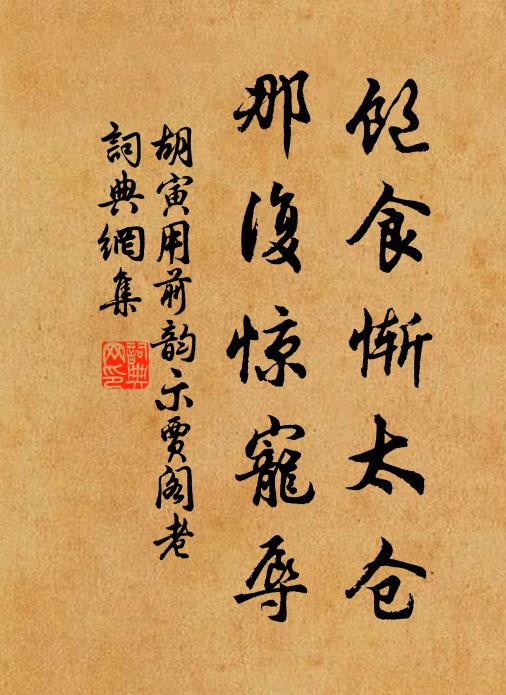 饱食惭太仓
那復惊寵辱
胡寅用前韵示賈阁老
詞典網集
詞典
网印